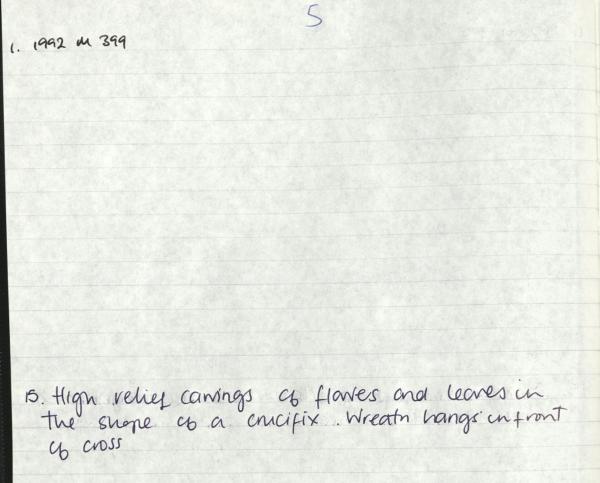 5
1. 1992 M 399
15. High relief carvings of flowers and leaves in
the shape of a crucifix. Wreath hangs in front
of cross